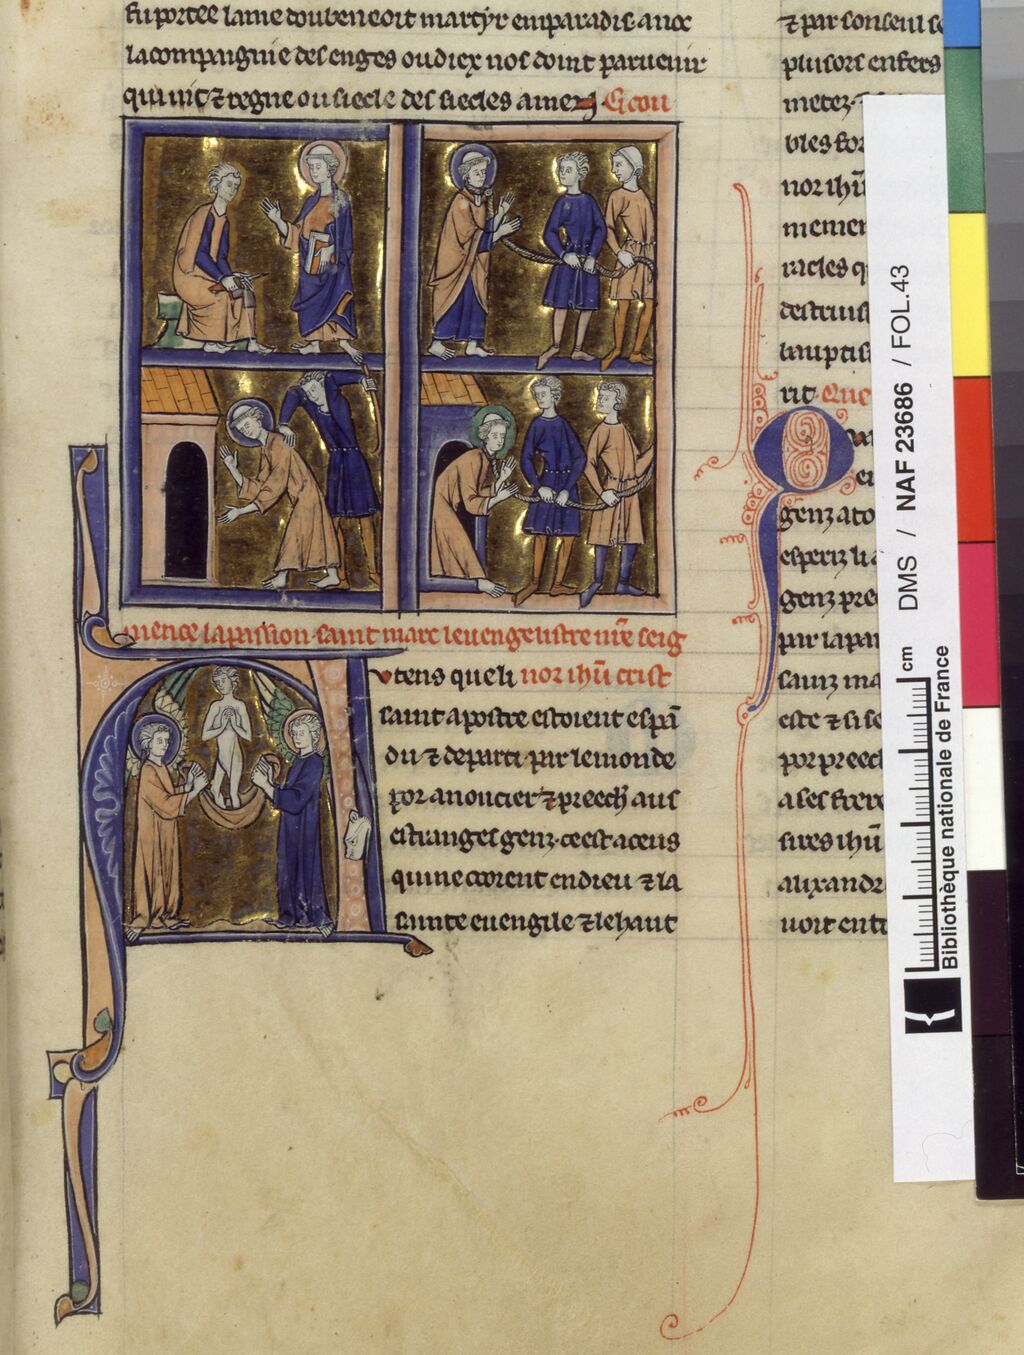 fu portee lame dou beneoit martyr em paradis. auec
la compaignie des enges ou diex nos doint paruenir
qui uit ⁊ regne ou siecle des siecles amen. Ci con
mence la passion saint marc leuengelistre nr̄e seig
utens que li nor ihū crist
saint apostre estoient espā
du ⁊ departi par le monde
por anoncier ⁊ preech aus
estranges genz. ce est a ceus
qui ne creoient en dieu ⁊ la
sainte euengile ⁊ le haut
⁊ par conseil se
plusors enfers
metez.
bles
nor ihū
memer
racles q
destruis
bauptis
rit. Que
genz a to
esperiz li
genz pree
par la par
sainz ma
este ⁊ si se
por preech
a ses frere
sires ihū
alixandr
uoit entr
DMS / NAF 23686 / FOL.43
cm
Bibliothèque nationale de France